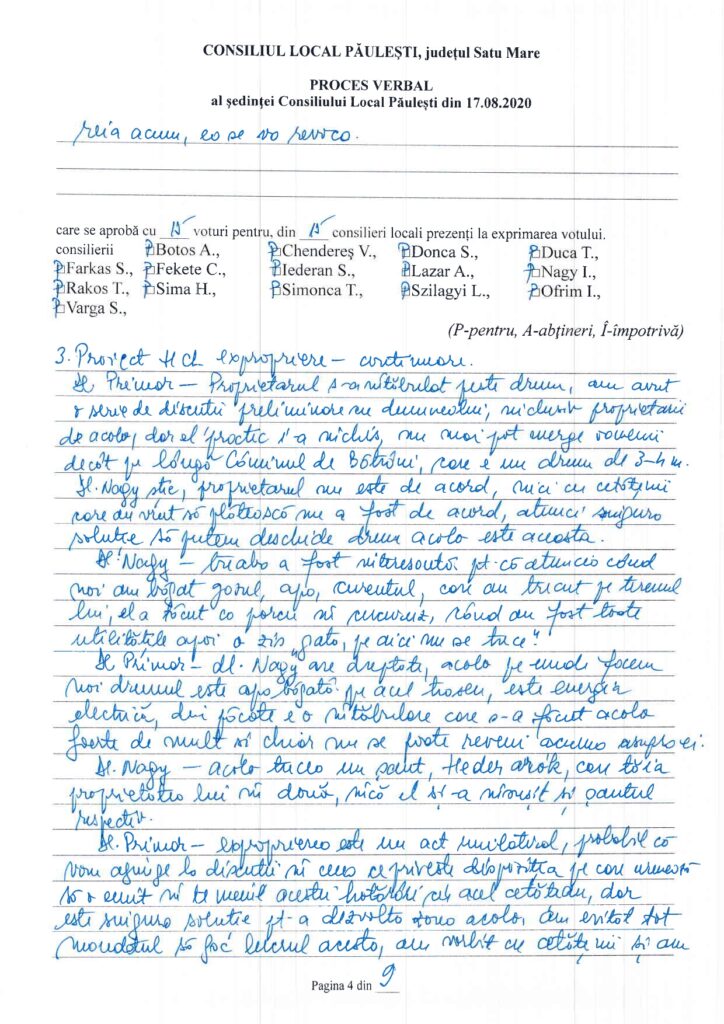 CONSILIUL LOCAL PĂULEȘTI, județul Satu Mare
PROCES VERBAL
al ședinței Consiliului Local Păulești din 17.08.2020
reia acum, ea se va revoca.
care se aprobă cu 15 voturi pentru, din 15 consilieri locali prezenți la exprimarea votului.
consilierii P Botos A., P Chendereș V., P Donca S., P Duca T.,
P Farkas S., P Fekete C., P Iederan S., P Lazar A., P Nagy I.,
P Rakos T., P Sima H., P Simonca T., P Szilagyi L., P Ofrim I.,
P Varga S.,
(P-pentru, A-abțineri, Î-împotrivă)
3. Proiect HCL expropriere – continuare.
Dl Primar – Proprietarul s-a intăbulat peste drum, am avut
o serie de discuții preliminare cu dumnealui, inclusiv proprietarii
de acolo, dar el practic i-a închis, nu mai pot merge oamenii
decât pe lângă Căminul de Bătrâni, care e un drum de 3-4 m.
Dl. Nagy știe, proprietarul nu este de acord, nici cu cetățenii
care au vrut să plătească nu a fost de acord, atunci singura
soluție să putem deschide drum acolo este aceasta.
Dl. Nagy – treaba a fost interesantă pt. că atuncia când
noi am băgat gazul, apa, curentul, care au trecut pe terenul
lui, el a tăcut ca porcu în cucuruz, când au fost toate
utilitățile apoi a zis "gata, pe aici nu se trece".
Dl Primar – dl. Nagy are dreptate, acolo pe unde facem
noi drumul este apa băgată pe acel traseu, este energia
electrică, din păcate e o intăbulare care s-a făcut acolo
foarte de mult și chiar nu se poate reveni acuma asupra ei.
Dl. Nagy – acolo trecea un șanț, Heder arok, care tăia
proprietatea lui în două, încă el și-a însușit și șanțul
respectiv.
Dl. Primar – exproprierea este un act unilateral, probabil că
vom ajunge la discuții în ceea ce privește dispoziția pe care urmează
să o emit în temeiul acestei hotărâri cu acel cetățean, dar
este singura soluție pt-a dezvolta zona acolo. Am evitat tot
mandatul să fac lucrul acesta, am vorbit cu cetățenii și am
Pagina 4 din 9